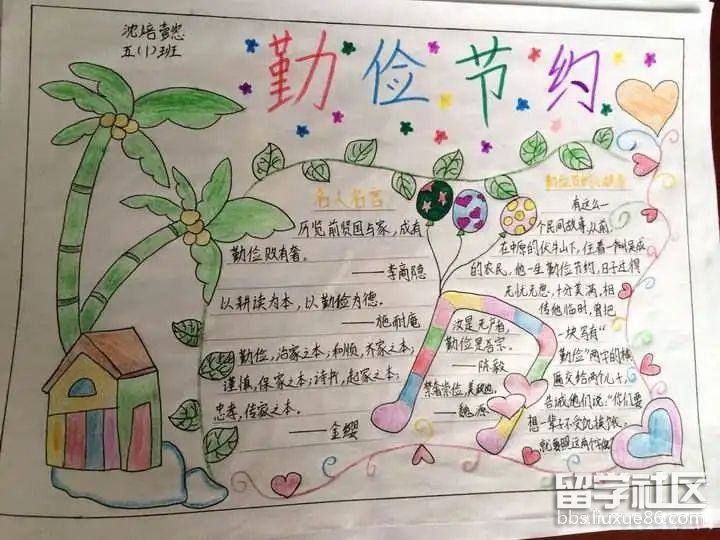 五(1)班
勤俭节约
名人名言
历览前贤国与家,成有
勤俭败有奢。
——李商隐
以耕读为本,以勤俭为德。
——施耐庵
勤俭,治家之本;和顺,齐家之本;
谨慎,保家之本;诗书,起家之本;
忠孝,传家之本。
——金缨
汝是无产者,
勤俭是吾宗。
——陈毅
——魏源
有这么一
个民间故事,从前,
在中原的伏牛山下,住着一个叫吴成
的农民,他一生勤俭节约,日子过得
无忧无愁,十分美满,相
传他临时,曾把
一块写有“
勤俭”两字的横
匾交给两个儿子,
告诫他们说:“你们要
想一辈子不受饥挨饿,
就要照这两个
留学社区
bbs.liuxue86.com